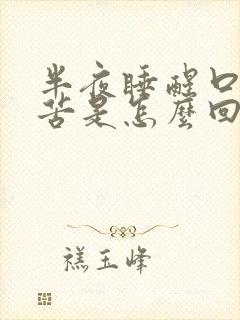 半夜睡醒口
苦是怎麼回
禚玉峰